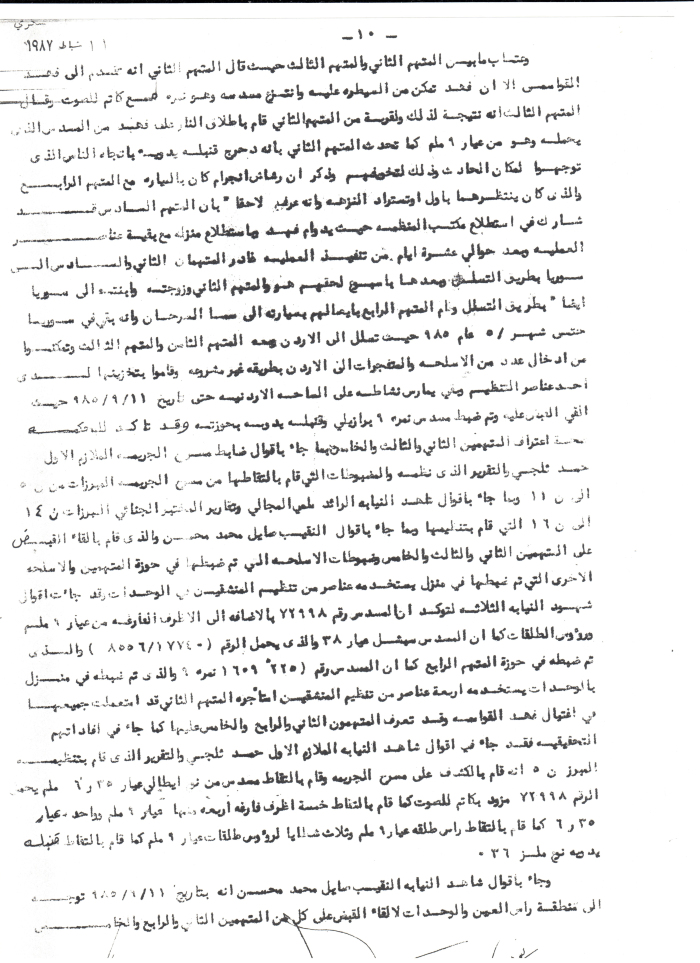 سكري
١١ شباط ١٩٨٧
- ١٠ -
وعتاب مابين المتهم الثاني والمتهم الثالث حيث قال المتهم الثاني انه تقدم الى فهد
القواسمي الا ان فهد تمكن من السيطره عليه وانتزع مسدسه وهو نمره مع كاتم للصوت وقال
المتهم الثالث انه نتيجة لذلك ولقربة من المتهم الثاني قام باطلاق النار على فهد من المسدس الذي
يحمله وهو من عيار ٩ ملم كما تحدث المتهم الثاني بانه دحرج قنبله يدويه باتجاه الناس الذى
توجهوا لمكان الحادث وذلك لتخويفهم وذكر ان رفاض انجرام كان بالسياره مع المتهم الرابع
والذى كان ينتظرهما باول اوتستراد النزهه وانه عرف لاحقا " بان المتهم السادس قد
شارك في استطلاع مكتب المنظمه حيث يداوم فهد وباستطلاع منزله مع بقية عناصر
العمليه وبعد حوالي عشرة ايام من تنفيذ العمليه غادر المتهمان الثاني والسادس الى
سوريا بطريق التسلل وبعدها باسبوع لحقهم هو والمتهم الثاني وزوجته وابنته الى سوريا
ايضا " بطريق التسلل وقام المتهم الرابع بايصالهم بسيارته الى سما السرحان وانه بقي في سوريا
حتى شهر /٥ عام ٩٨٥ حيث تسلل الى الاردن ومعه المتهم الثامن والمتهم الثالث وتمكنوا
من ادخال عدد من الاسلحه والمتفجرات الى الاردن بطريقه غير مشروعه وقاموا بتخزينها لدى
احد عناصر التنظيم وبقي يمارس نشاطه على الساحه الاردنيه حتى تاريخ ٩٨٥/٩/١١ حيث
القي القبض عليه وتم ضبط مسدس نمره ٩ برازيلي وقنبله يدويه بحوزته وقد تاكد للمحكمه
صحة اعتراف المتهمين الثاني والثالث والخامس بما جاء باقوال ضابط مسرح الجريمه الملازم الاول
حمد ثلجي والتقرير الذى نظمه والمضبوطات التي قام بالتقاطها من مسرح الجريمه المبرزات من ن ٥
الى ن ١١ وبما جاء باقوال شاهد النيابه الرائد المجالي وتقارير المختبر الجنائي المبرزات ن ١٤
الى ن ١٦ التي قام بتنظيمها وبما جاء باقوال النقيب صايل محمد محسن والذى قام بالقاء القبض
على المتهمين الثاني والثالث والخامس وضبوطات الاسلحه التي تم ضبطها في حوزة المتهمين والاسلحه
الاخرى التي تم ضبطها في منزل يستخدمه عناصر من تنظيم المنشقين في الوحدات وقد جاءت اقوال
شهود النيابه الثلاثه لتوكد ان المسدس رقم ٧٢٩٩٨ بالاضافه الى الاظرف الفارغه من عيار ٩ ملم
وروؤس الطلقات كما ان المسدس سبيشل عيار ٣٨ والذى يحمل الرقم (٨٥٥٦/١٧٧٤٠) والذى
تم ضبطه في حوزة المتهم الرابع كما ان المسدس رقم (١٦٥٩٢٢٥ نمره ٩ والذى تم ضبطه في منزل
بالوحدات يستخدمه اربعة عناصر من تنظيم المنشقين استأجره المتهم الثاني قد استعملت جميعها
في اغتيال فهد القواسمه وقد تعرف المتهمون الثاني والرابع والخامس عليها كما جاء في افاداتهم
التحقيقيه فقد جاء في اقوال شاهد النيابه الملازم الاول حمد ثلجي والتقرير الذى قام بتنظيمه
المبرز ن ٥ انه قام بالكشف على مسرح الجريمه وقام بالتقاط مسدس من نوع ايطالي عيار ٣٥ر٦ ملم يحمل
الرقم ٧٢٩٩٨ مزود بكاتم للصوت كما قام بالتقاط خمسة اظرف فارغه اربعه منها عيار ٩ ملم وواحد عيار
٣٥ر٦ كما قام بالتقاط راس طلقه عيار ٩ ملم وثلاث شظايا لروؤس طلقات عيار ٩ ملم كما قام بالتقاط قنبله
يدويه نوع ملز ٣٦ ٠
وجاء باقوال شاهد النيابه النقيب صايل محمد محسن انه بتاريخ ٩٨٥/٩/١١ توجه
الى منطقة راس العين والوحدات لالقاء القبض على كل من المتهمين الثاني والرابع والخامس